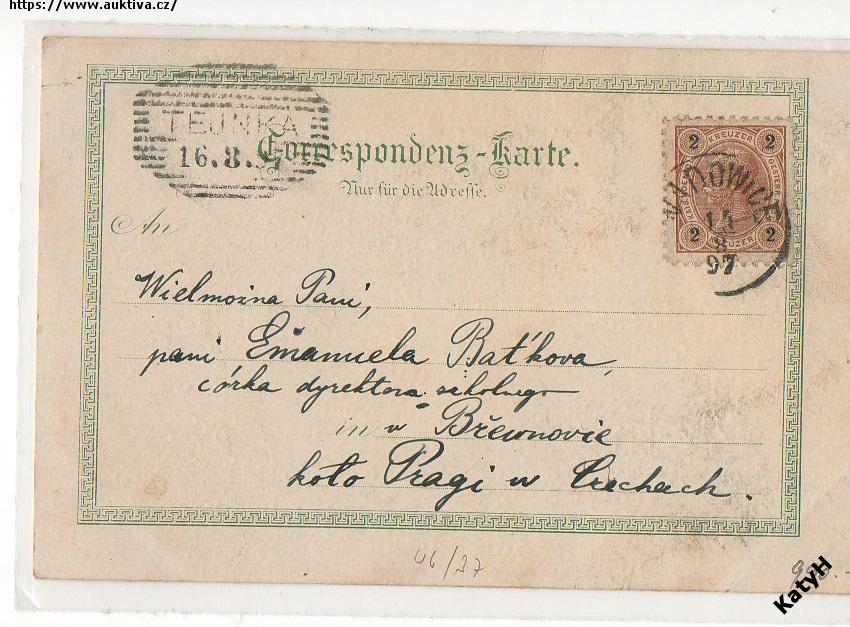 https://www.auktiva.cz/
TEJNKA
16.8.
Correspondenz-Karte.
Nur für die Adresse.
An
2 KREUZER 2
2 KREUZER 2
WADOWICE
14
8
97
Wielmożna Pani,
pani Emanuela Baťkova,
córka dyrektora szkolnego
in w Břewnovie
koło Pragi w Czechach.
KatyH